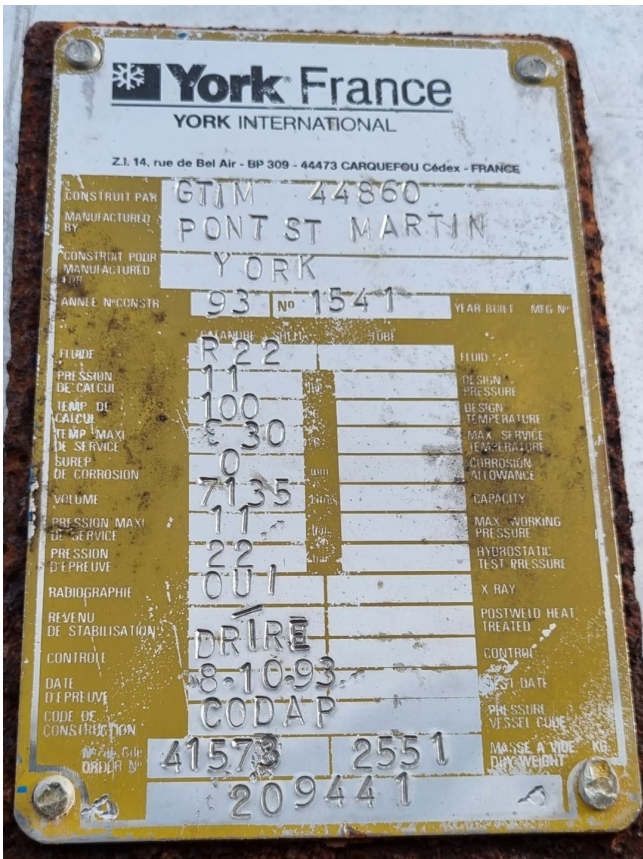 York® France
YORK INTERNATIONAL
Z.I. 14, rue de Bel Air - BP 309 - 44473 CARQUEFOU Cédex - FRANCE
CONSTRUIT PAR GTIM 44860
MANUFACTURED BY PONT ST MARTIN
CONSTRUIT POUR YORK
MANUFACTURED FOR
ANNEE NºCONSTR 93 Nº 1541 YEAR BUILT MFG Nº
CALANDRE SHELL TUBE
FLUIDE R22 FLUID
PRESSION DE CALCUL 11 DESIGN PRESSURE
TEMP DE CALCUL 100 DESIGN TEMPERATURE
TEMP MAXI DE SERVICE 30 MAX SERVICE TEMPERATURE
SUREP DE CORROSION 0 mm CORROSION ALLOWANCE
VOLUME 7135 CAPACITY
PRESSION MAXI DE SERVICE 11 MAX WORKING PRESSURE
PRESSION D'EPREUVE 22 HYDROSTATIC TEST PRESSURE
RADIOGRAPHIE OUI X RAY
REVENU DE STABILISATION / POSTWELD HEAT TREATED
CONTROLE DRIRE CONTROL
DATE D'EPREUVE 8-10-93 TEST DATE
CODE DE CONSTRUCTION CODAP PRESSURE VESSEL CODE
ORDER Nº 41573 2551 MASSE A VIDE KG
DRY WEIGHT
209441